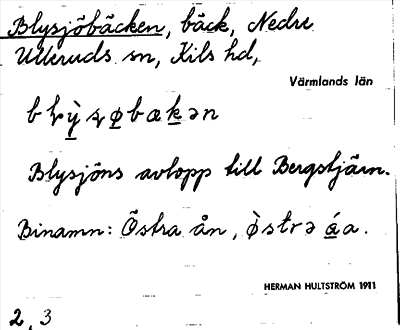 Blysjöbäcken, bäck, Nedre
Ulleruds sn, Kils hd,
Värmlands län
Blysjöns avlopp till Bergstjärn.
Binamn: Östra ån,
HERMAN HULTSTRÖM 1911
2, 3